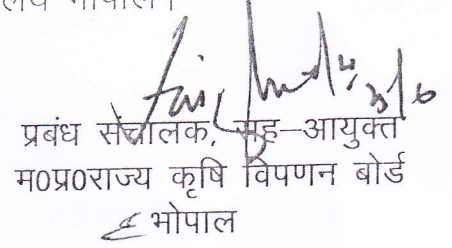 भोपाल।
प्रबंध संचालक, सह-आयुक्त
म0प्र0राज्य कृषि विपणन बोर्ड
भोपाल